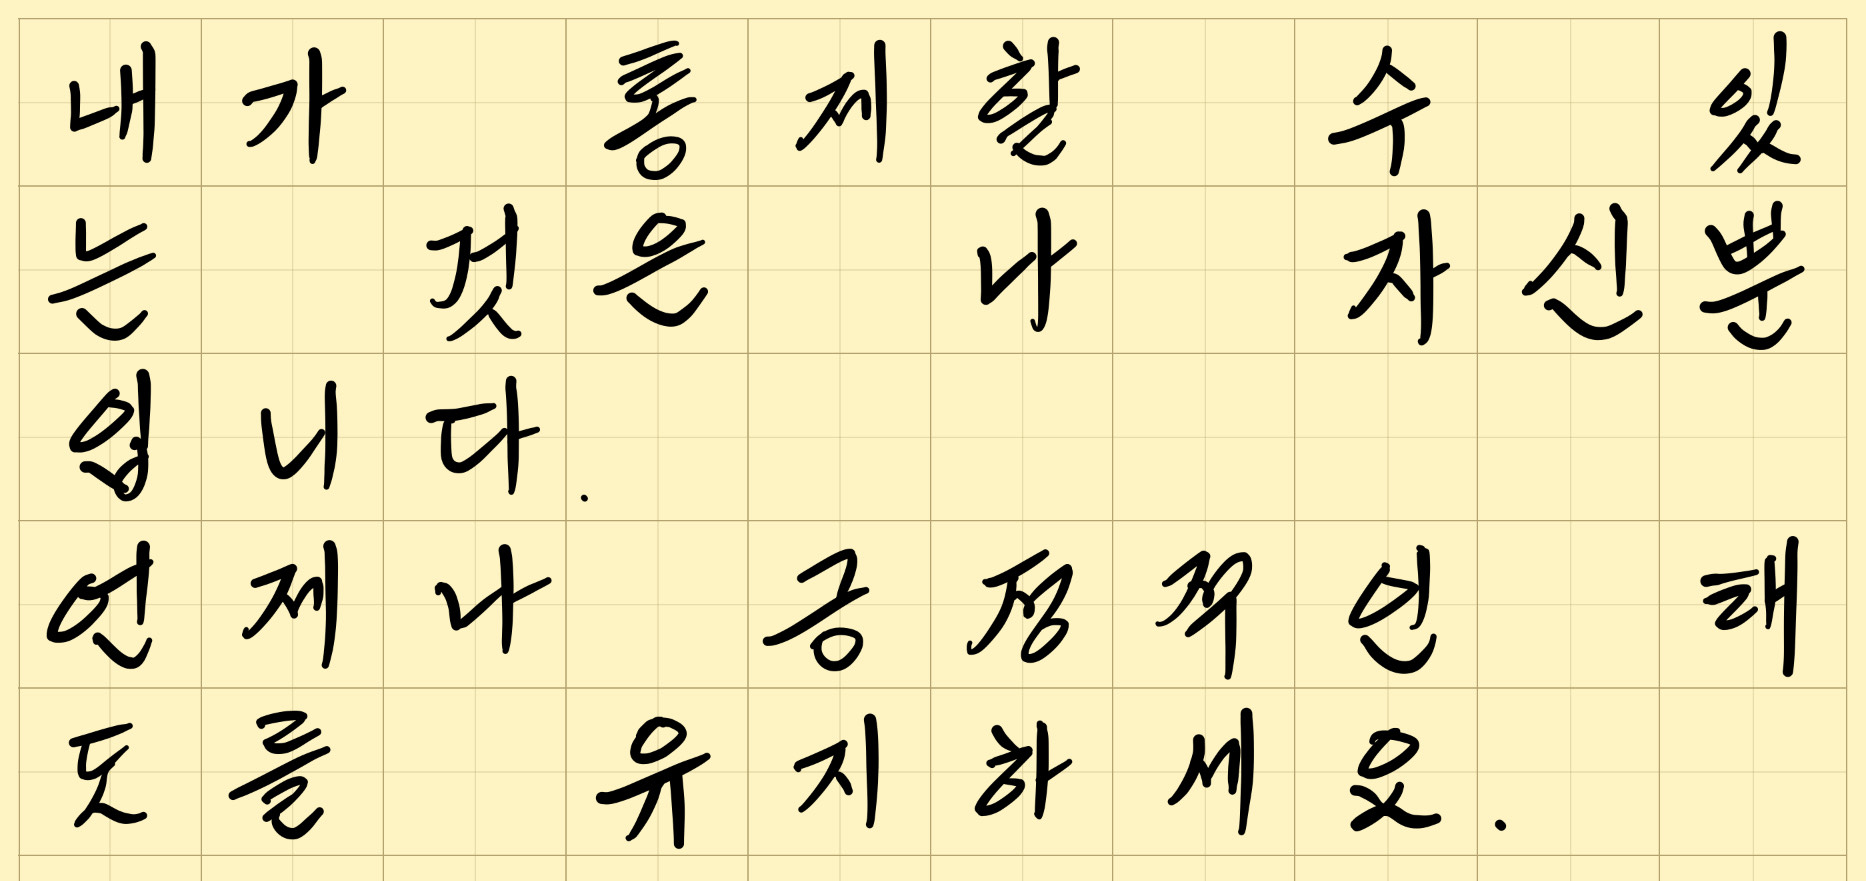 내가 통제할 수 있
는 것은 나 자신뿐
입니다.
언제나 긍정적인 태
도를 유지하세요.